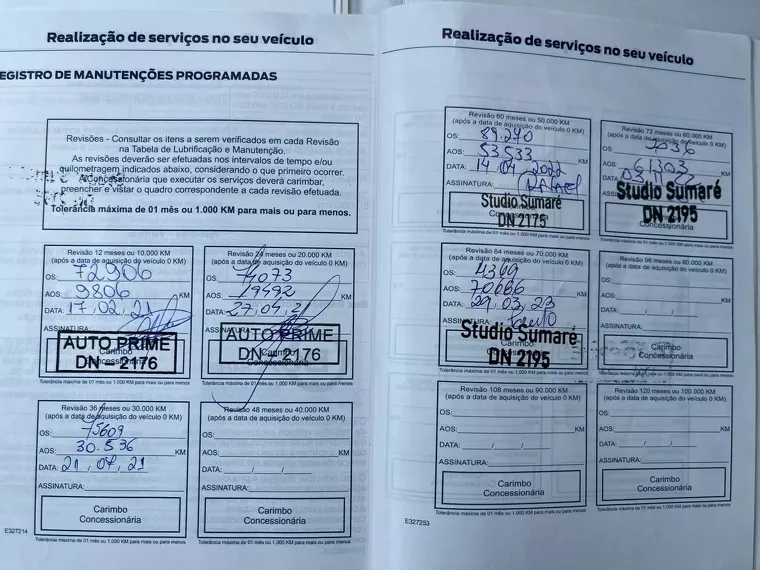 Realização de serviços no seu veículo
EGISTRO DE MANUTENÇÕES PROGRAMADAS
Revisões - Consultar os itens a serem verificados em cada Revisão
na Tabela de Lubrificação e Manutenção.
As revisões deverão ser efetuadas nos intervalos de tempo e/ou
quilometragem indicados abaixo, considerando o que primeiro ocorrer.
A Concessionária que executar os serviços deverá carimbar,
preencher e vistar o quadro correspondente a cada revisão efetuada.
Tolerância máxima de 01 mês ou 1.000 KM para mais ou para menos.
Revisão 12 meses ou 10.000 KM
(após a data de aquisição do veículo 0 KM)
OS: 72906
AOS: 9806 KM
DATA: 17, 02, 21
ASSINATURA:
AUTO PRIME
DN - 2176
Carimbo
Concessionária
Tolerância máxima de 01 mês ou 1.000 KM para mais ou para menos
Revisão 24 meses ou 20.000 KM
(após a data de aquisição do veículo 0 KM)
OS: 74073
AOS: 19492 KM
DATA: 27, 04, 21
ASSINATURA:
AUTO PRIME
DN - 2176
Carimbo
Concessionária
Tolerância máxima de 01 mês ou 1.000 KM para mais ou para menos
Revisão 36 meses ou 30.000 KM
(após a data de aquisição do veículo 0 KM)
OS: 75609
AOS: 30.536 KM
DATA: 21, 07, 21
ASSINATURA:
Carimbo
Concessionária
Tolerância máxima de 01 mês ou 1.000 KM para mais ou para menos
Revisão 48 meses ou 40.000 KM
(após a data de aquisição do veículo 0 KM)
OS:
AOS: KM
DATA: / /
ASSINATURA:
Carimbo
Concessionária
Tolerância máxima de 01 mês ou 1.000 KM para mais ou para menos
E327214
Realização de serviços no seu veículo
Revisão 60 meses ou 50.000 KM
(após a data de aquisição do veículo 0 KM)
OS: 89.270
AOS: 53.533 KM
DATA: 14, 04, 2022
ASSINATURA: RAFAEL
Studio Sumaré
DN 2175
Concessionária
Tolerância máxima de 01 mês ou 1.000 KM para mais ou para menos
Revisão 72 meses ou 60.000 KM
(após a data de aquisição do veículo 0 KM)
OS:
AOS: 61303 KM
DATA:
ASSINATURA:
Studio Sumaré
DN 2195
Concessionária
Tolerância máxima de 01 mês ou 1.000 KM para mais ou para menos
Revisão 84 meses ou 70.000 KM
(após a data de aquisição do veículo 0 KM)
OS: 4369
AOS: 70666 KM
DATA: 29, 03, 23
ASSINATURA:
Studio Sumaré
DN 2195
Carimbo
Concessionária
Tolerância máxima de 01 mês ou 1.000 KM para mais ou para menos
Revisão 96 meses ou 80.000 KM
(após a data de aquisição do veículo 0 KM)
OS:
AOS: KM
DATA: / /
ASSINATURA:
Carimbo
Concessionária
Tolerância máxima de 01 mês ou 1.000 KM para mais ou para menos
Revisão 108 meses ou 90.000 KM
(após a data de aquisição do veículo 0 KM)
OS:
AOS: KM
DATA: / /
ASSINATURA:
Carimbo
Concessionária
Tolerância máxima de 01 mês ou 1.000 KM para mais ou para menos
Revisão 120 meses ou 100.000 KM
(após a data de aquisição do veículo 0 KM)
OS:
AOS: KM
DATA: / /
ASSINATURA:
Carimbo
Concessionária
Tolerância máxima de 01 mês ou 1.000 KM para mais ou para menos
E327253